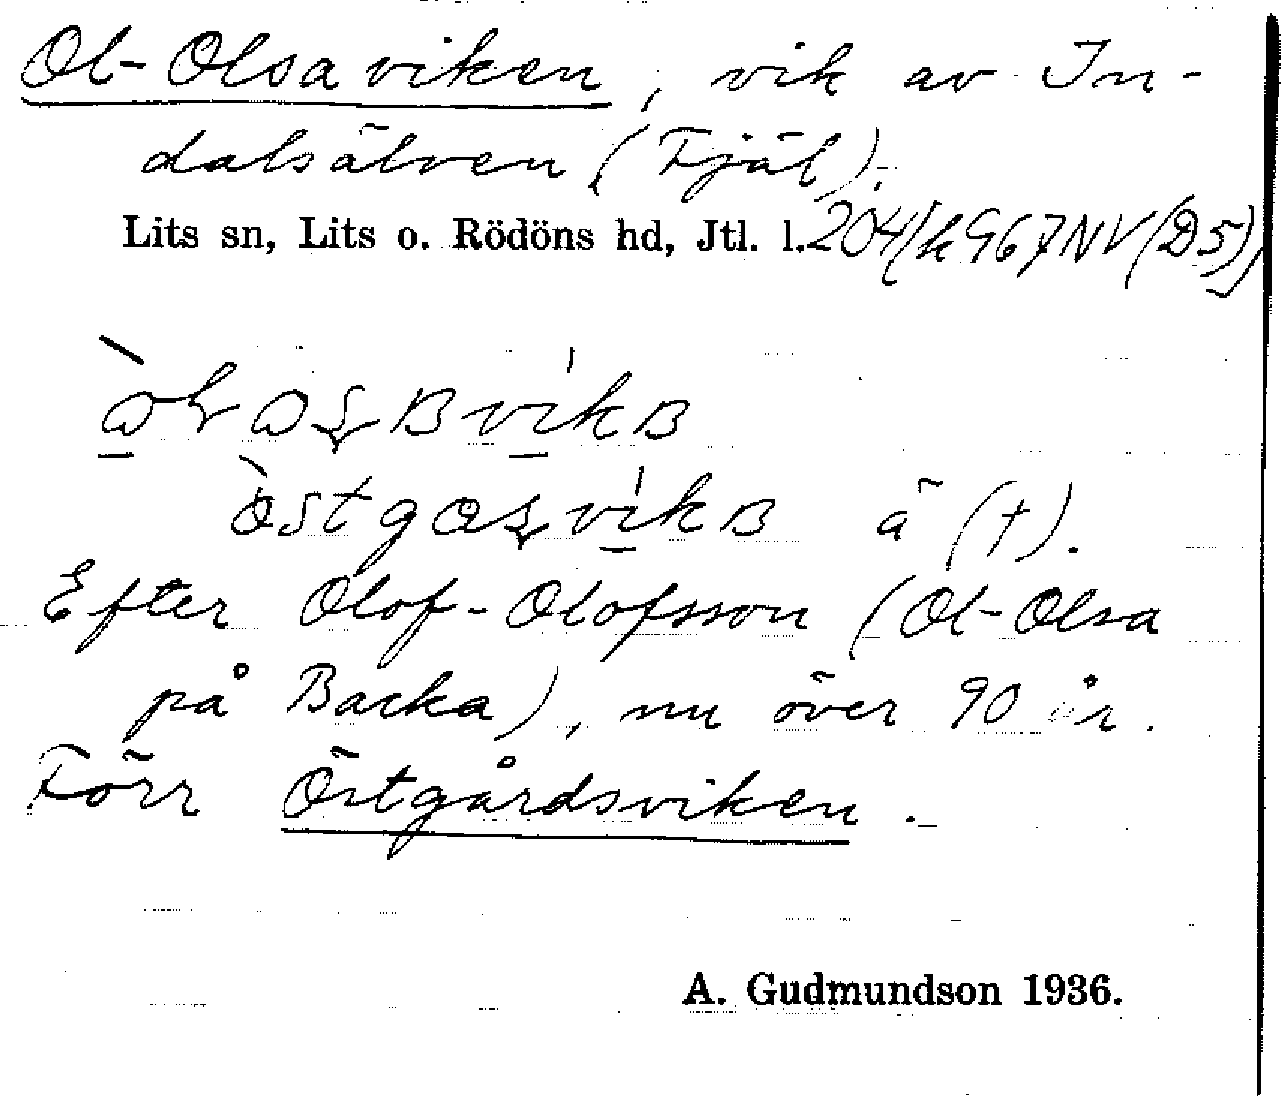 Ol-Olsaviken, vik av In-
dalsälven (Fjäl).
Lits sn, Lits o. Rödöns hd, Jtl. l. 204/k967NV(D5)
ä (†).
Efter Olof-Olofsson (Ol-Olsa
på Backa), nu över 90 år.
Förr Östgårdsviken.
A. Gudmundson 1936.